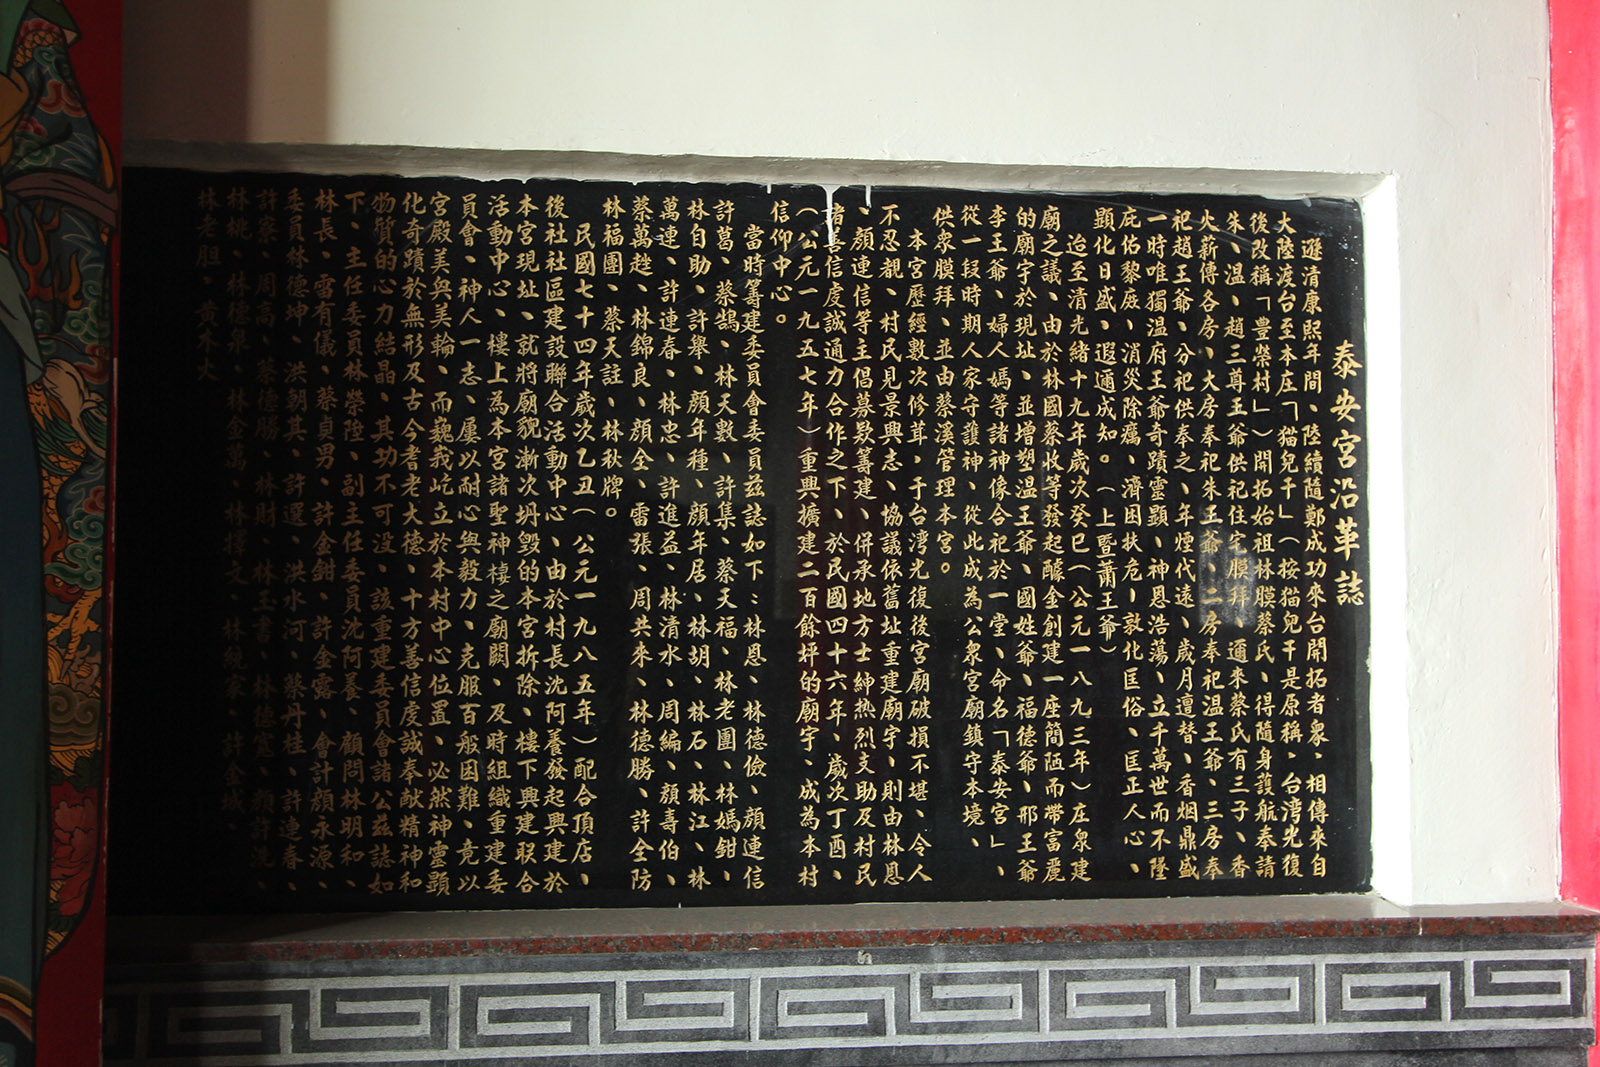 泰安宮沿革誌
遜清康熙年間、陸續隨鄭成功來台開拓者衆、相傳來自
大陸渡台至本庄「猫兒干」(按猫兒干是原稱、台湾光復
後改稱「豐榮村」)開拓始祖林膜蔡氏、得隨身護航奉請
朱、温、趙三尊王爺供祀住宅膜拜、邇來蔡氏有三子、香
火薪傳各房、大房奉祀朱王爺、二房奉祀温王爺、三房奉
祀趙王爺、分祀供奉之、年煙代遠、歲月遭替、香烟鼎盛
一時唯獨温府王爺奇蹟靈顯、神恩浩蕩、立千萬世而不墜
庇佑黎庶、消災除癘、濟困扶危-敦化匡俗、匡正人心、
顯化日盛、遐邇成知。(上暨蕭王爺)
迨至清光緒十九年歲次癸巳(公元一八九三年)庄衆建
廟之議、由於林國蔡收等發起醵金創建一座簡陋而帶富麗
的廟宇於現址、並增塑温王爺、國姓爺、福德爺、邢王爺
李王爺、婦人媽等諸神像合祀於一堂、命名「泰安宮」、
從一段時期人家守護神、從此成為公衆宮廟鎮守本境、
供衆膜拜、並由蔡溪管理本宮。
本宮歷經數次修茸、于台湾光復後宮廟破損不堪、令人
不忍覩、村民見景興志、協議依舊址重建廟宇、則由林恩
、顔連信等主倡募欵籌建、併承地方士紳热烈支助及村民
諸善信虔誠通力合作之下、於民國四十六年、歲次丁酉、
(公元一九五七年)重興擴建二百餘坪的廟宇、成為本村
信仰中心。
當時籌建委員會委員茲誌如下:林恩、林德儉、顔連信
許萬、蔡鵠、林天數、許集、蔡天福、林老團、林媽鉗、
林自助、許舉、顔年種、顔年居、林胡、林石、林江、林
萬連、許連春、林忠、許進益、林清水、周編、顔壽伯、
蔡萬趖、林錦良、顔全、雷張、周共來、林德勝、許全防
林福團、蔡天註、林秋牌。
民國七十四年歲次乙丑(公元一九八五年)配合頂店、
後社社區建設聯合活動中心、由於村長沈阿養發起興建於
本宮現址、就將廟貌漸次坍毀的本宮拆除、樓下興建联合
活動中心、樓上為本宮諸聖神棲之廟闕、及時組織重建委
員會、神人一志、屢以耐心與毅力、克服百般困難、竟以
宮殿美奐美輪、而巍峩屹立於本村中心位置、必然神靈顯
化奇蹟於無形及古今耆老大德、十方善信虔誠奉献精神和
物質的心力結晶、其功不可没、該重建委員會諸公茲誌如
下、主任委員林榮陞、副主任委員沈阿養、顧問林明和、
林長、雷有儀、蔡貞男、許金鉗、許金露、會計顔永源、
委員林德坤、洪朝其、許選、洪水河、蔡丹桂、許連春、
許寮、周高、蔡德勝、林財、林玉書、林德寬、顔許洗、
林桃、林德泉、林金萬、林擇文、林統家、許金城、
林老胆、黄木火